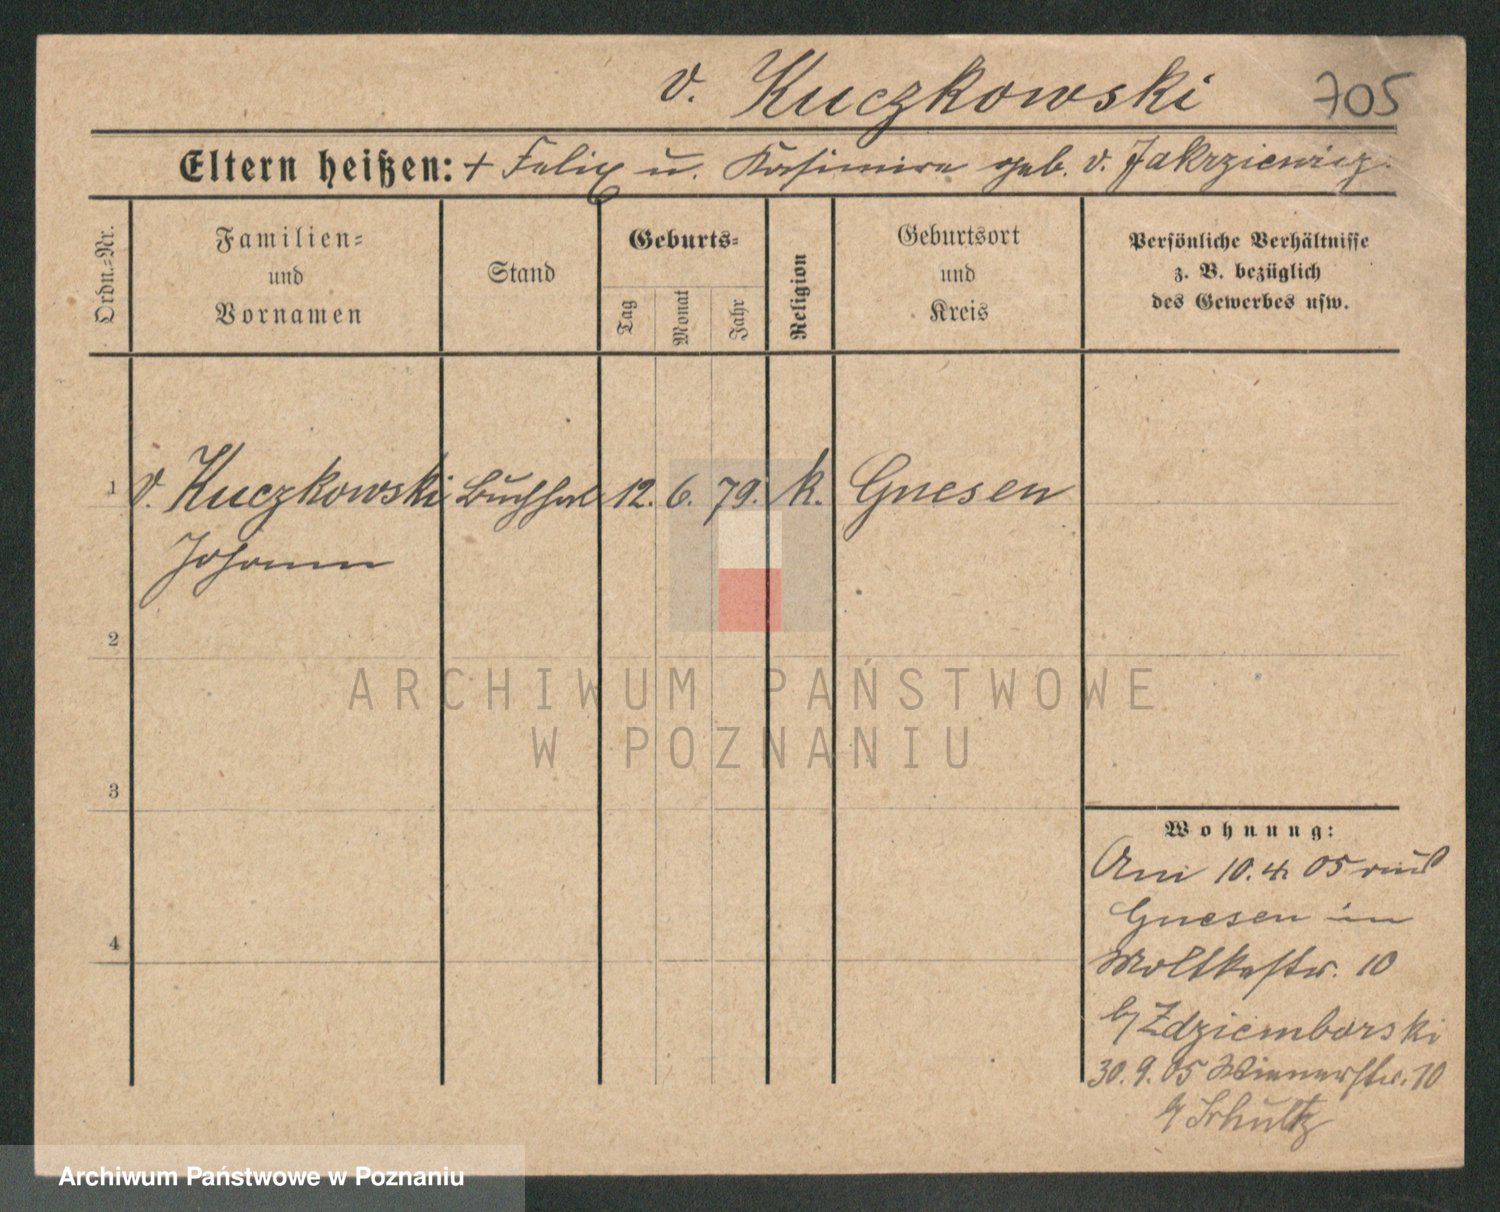 v. Kuczkowski 705
Eltern heißen: + Felix u. Kasimira geb. v. Jakrziewicz.
Ordn.-Nr.
Familien-
und
Vornamen
Stand
Geburts-
Tag
Monat
Jahr
Religion
Geburtsort
und
Kreis
Persönliche Verhältnisse
z. B. bezüglich
des Gewerbes usw.
1 v. Kuczkowski Buchhal 12. 6. 79. k. Gnesen
Johann
2
3
4
Wohnung:
Am 10.4. 05 aus
Gnesen in
Moltkestr. 10
b/ Zdziemborski
30.9.05 Wienerstr. 10
b/ Schultz
ARCHIWUM PAŃSTWOWE
W POZNANIU
Archiwum Państwowe w Poznaniu